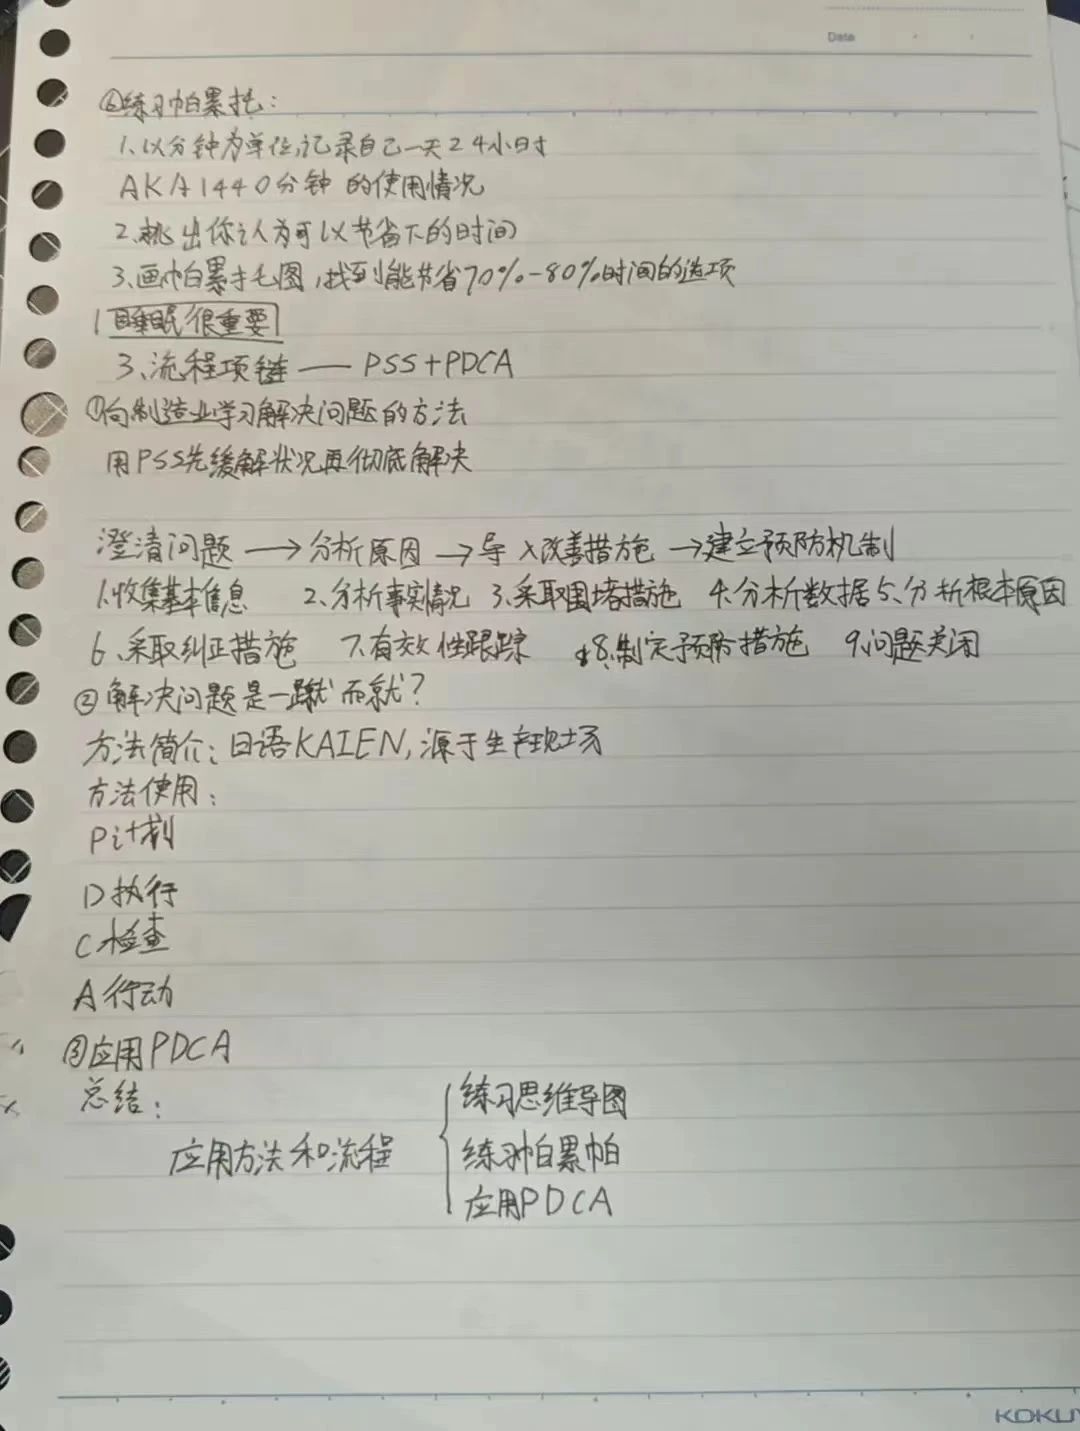 Date
⑥练习帕累托:
1.以分钟为单位,记录自己一天24小时
AKA1440分钟的使用情况
2.挑出你认为可以节省下的时间
3.画帕累托图,找到能节省70%-80%时间的选项
睡眠很重要
3.流程项链——PSS+PDCA
①向制造业学习解决问题的方法
用PSS先缓解状况再彻底解决
澄清问题→分析原因→导入改善措施→建立预防机制
1.收集基本信息 2.分析事实情况 3.采取围堵措施 4.分析数据 5.分析根本原因
6.采取纠正措施 7.有效性跟踪 8.制定预防措施 9.问题关闭
②解决问题是一蹴而就?
方法简介:日语KAIEN,源于生产现场
方法使用:
P计划
D执行
C检查
A行动
③应用PDCA
总结:
练习思维导图
应用方法和流程 练习帕累帕
应用PDCA